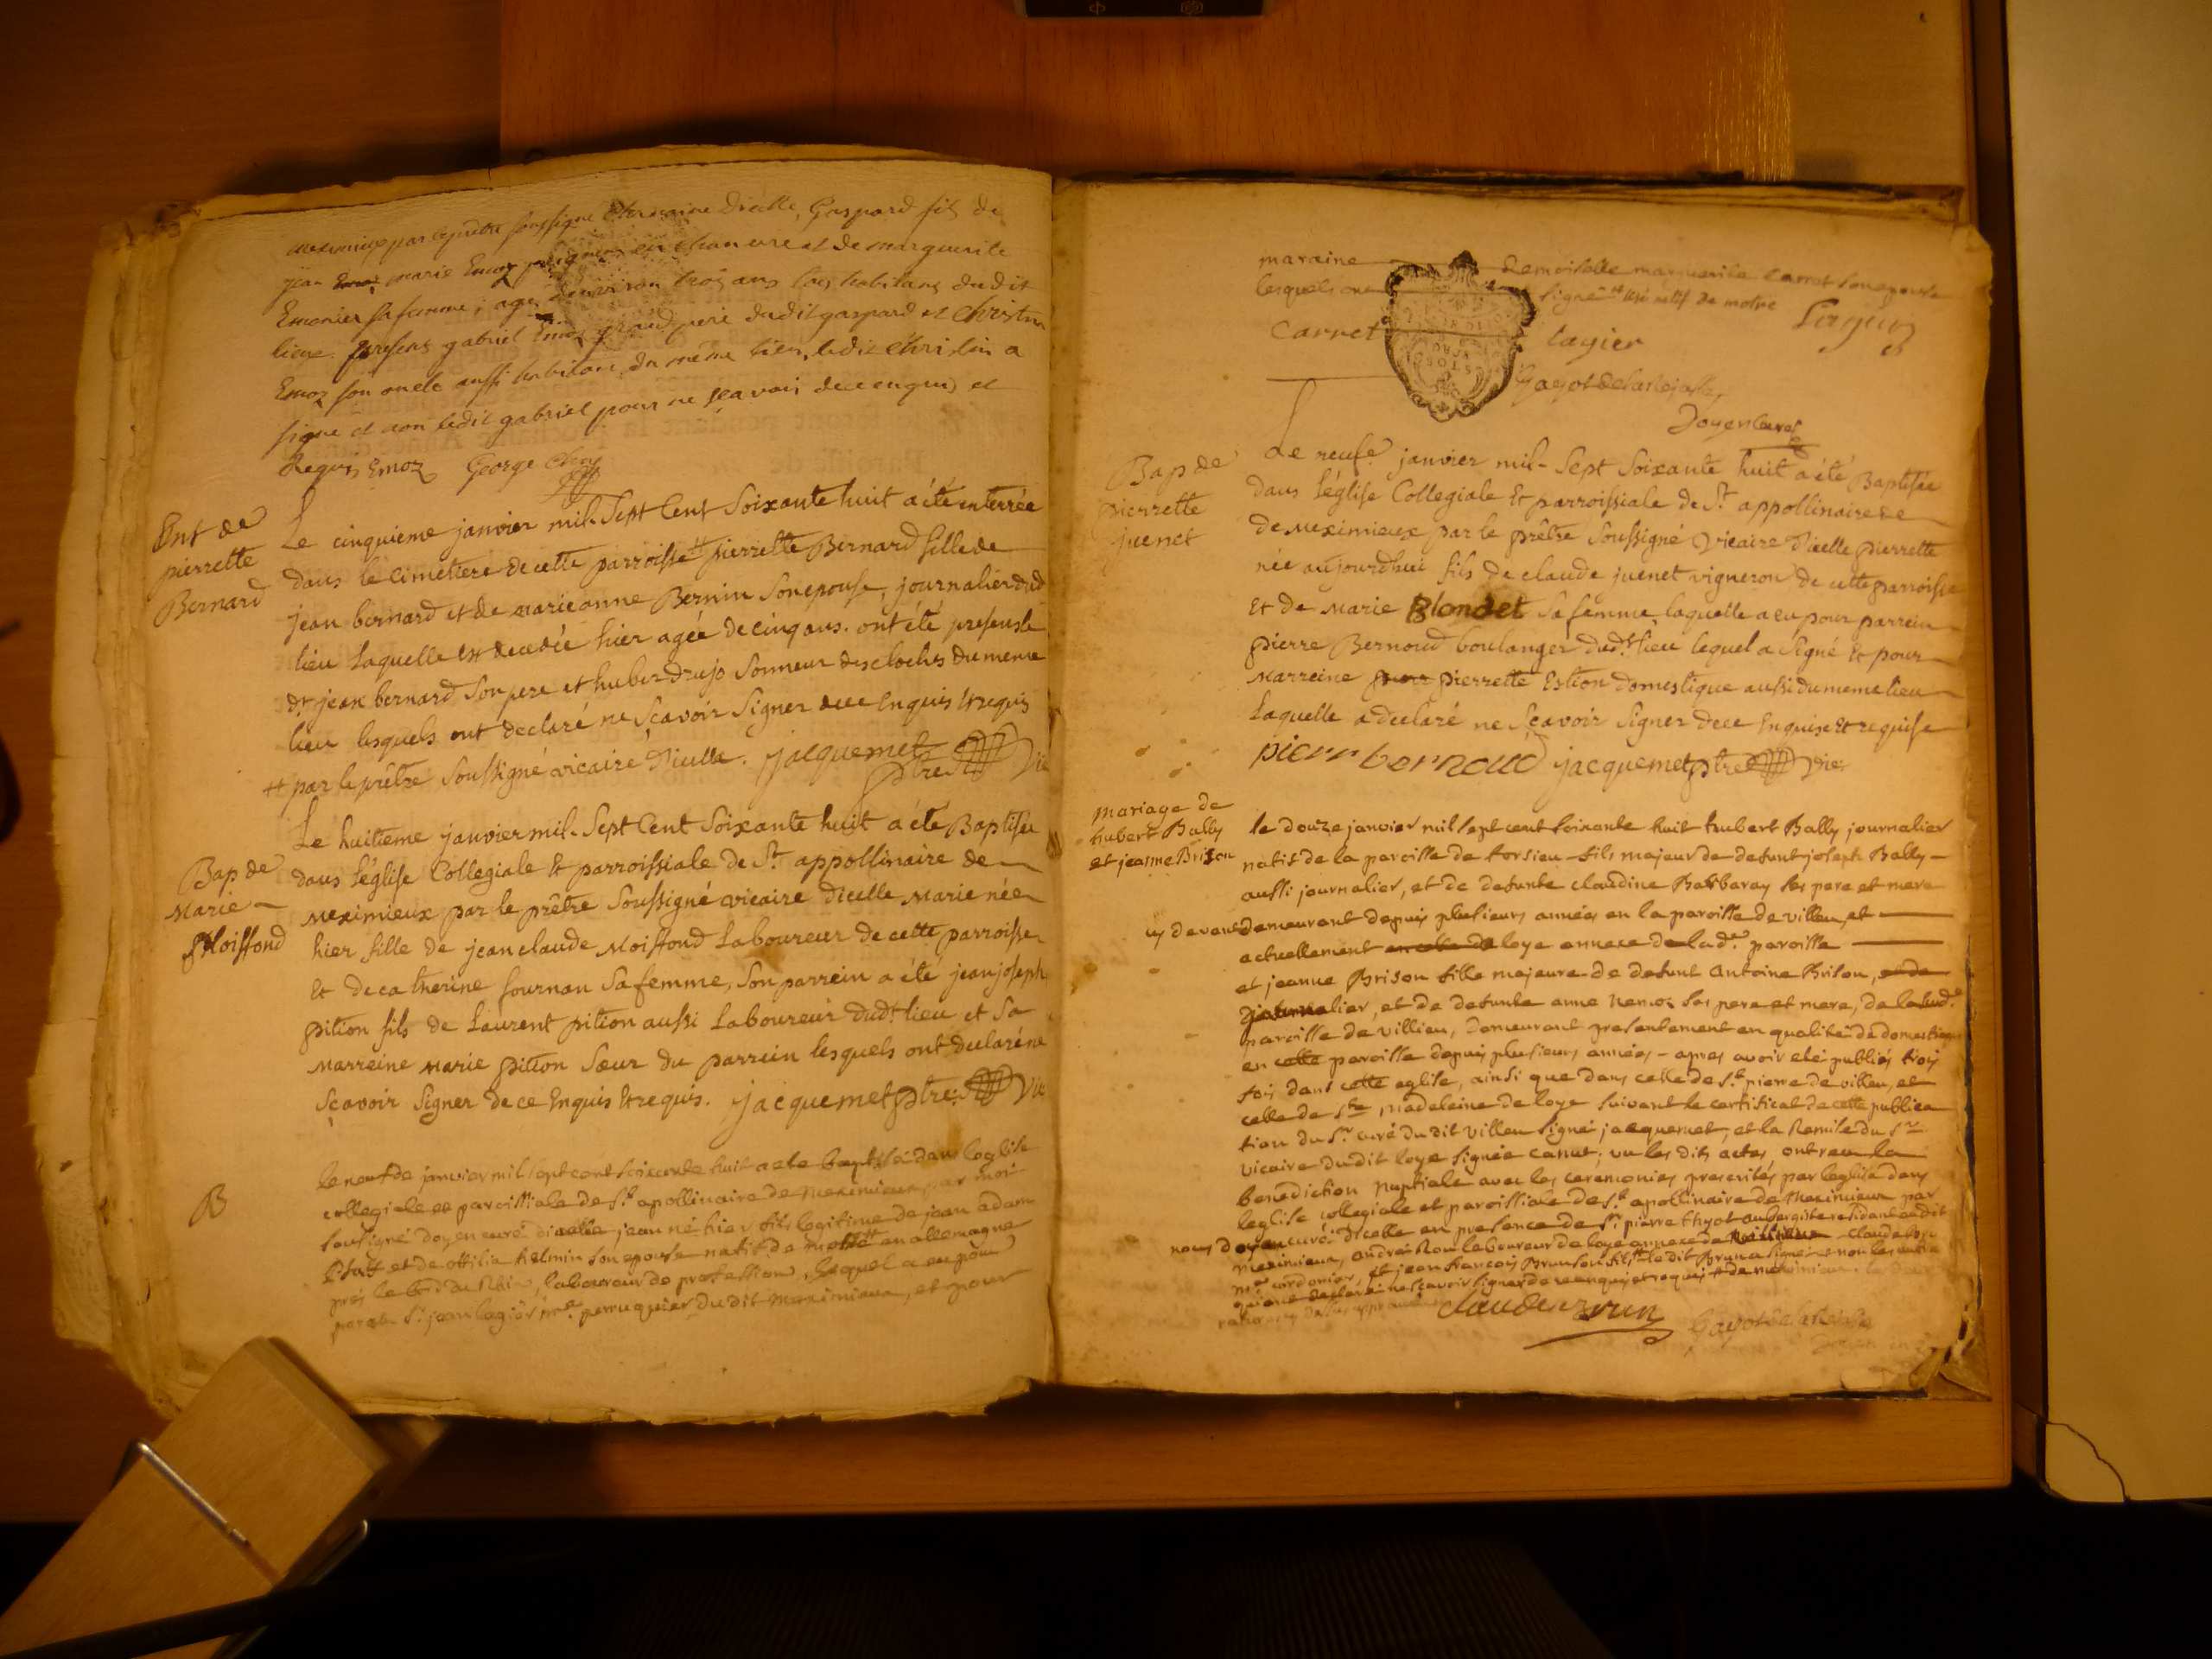 meximieux par le prêtre soussigné vicaire d'icelle, Gaspard fils de
jean marie Emoz peigneur de chanvre et de marguerite
Emonier sa femme; agé d'environ trois ans tous habitans dudit
lieux. presens gabriel Emoz grand pere dudit gaspard et Christin
Emoz son oncle aussi habitans du même lieu, ledit Christin a
signe et non ledit gabriel pour ne sçavoir de ce enquis et
Requis Emoz George
Ent de
pierrette
Bernard
Le cinquieme janvier mil-Sept Cent Soixante huit a été enterrée
dans le Cimetiere de cette parroisse # pierrette Bernard fille de
jean bernard et de marieanne Bernin Son epouse, journalier dud
lieu Laquelle est decedée hier agée de cinq ans. ont été presens le
dt jean bernard Son pere et huber drujo Sonneur des cloches du meme
lieu lesquels ont declaré ne Sçavoir Signer de ce Enquis Et requis
# par le prêtre Soussigné vicaire d'icelle. jacquemet ptre Vic
Bap de
Marie
Moissond
Le huitieme janvier mil-Sept Cent Soixante huit a été Baptisée
dans l'église Collegiale Et parroissiale de St appollinaire de
Meximieux par le prêtre Soussigné vicaire d'icelle Marie née
hier fille de jean claude Moissond Laboureur de cette parroisse
Et de catherine fournan Sa femme, Son parrein a été jean joseph
pition fils de Laurent pition aussi Laboureur dudt lieu et Sa
Marreine Marie pition Sœur du parrein lesquels ont declaré ne
Sçavoir Signer de ce Enquis Et requis. jacquemet ptre Vic
B
le neuf de janvier mil sept cent soixante huit a ete baptisé dans l'eglise
collegiale et paroissiale de St apollinaire de Meximieux par moi
sousigné doyen curé dicelle jean né hier fils legitime de jean adam
et de ottilia helmin son epouse natif de en allemagne
prés le bord du Rhin, laboureur de profession, lequel a eu pour
parain Sr jean lagier me perruquier du dit Meximieux, et pour
maraine demoiselle marguerite carret son epouse
lesquels ont signé natif de
Carret lagier
Doyen curé
Bap de
pierrette
juenet
Le neufe janvier mil-Sept Soixante huit a été Baptisée
dans l'église Collegiale Et parroissiale de St appollinaire de
de Meximieux par le prêtre Soussigné vicaire d'icelle pierrette
née aujourdhui fils de claude juenet vigneron de cette parroisse
Et de Marie Blondet Sa femme, laquelle a eu pour parrein
pierre Bernoud boulanger dudt lieu lequel a Signé Et pour
Marreine pour pierrette Estion domestique aussi du meme lieu
Laquelle a declaré ne Sçavoir Signer de ce Enquise Et requise
pierr bernoud jacquemet ptre Vic
mariage de
hubert Bally
et jeanne Brison
le douze janvier mil sept cent soixante huit hubert Bally journalier
natif de la paroisse de torsieu fils majeur de defunt joseph Bally
aussi journalier, et de defunte claudine Barbaray ses pere et mere
cy devant demeurant depuis plusieurs années en la paroisse de villeu, et
actuellement en celle de loye annexe de lade paroisse
et jeanne Brison fille majeure de defunt Antoine Brison, et de
journalier, et de defunte anne ses pere et mere, de la sude
paroisse de villieu, demeurant presentement en qualité de domestique
en cette paroisse depuis plusieurs années - apres avoir eté publiés trois
fois dans cette eglise, ainsi que dans celle de St pierre de villeu, et
celle de Ste Madeleine de loye suivant le certificat de cette publica
tion du Sr curé du dit villeu signé jacquemet, et la Remise du Sr
vicaire dudit loye signée canut; vu les dits actes, ont reçu la
benediction nuptiale avec les ceremonies prescrites par leglise dans
leglise collegiale et paroissiale de St apollinaire de Meximieux par
nous doyen curé dicelle en presence de Sr pierre thyot aubergiste residant audit
Meximieux, andré Rou laboureur de loye annexe de claude brun
me cordonier, et jean françois Brunson fils le dit Brun a signé et non les autres
qui ont declaré ne scavoir signer de ce enquis et requis
claude brun